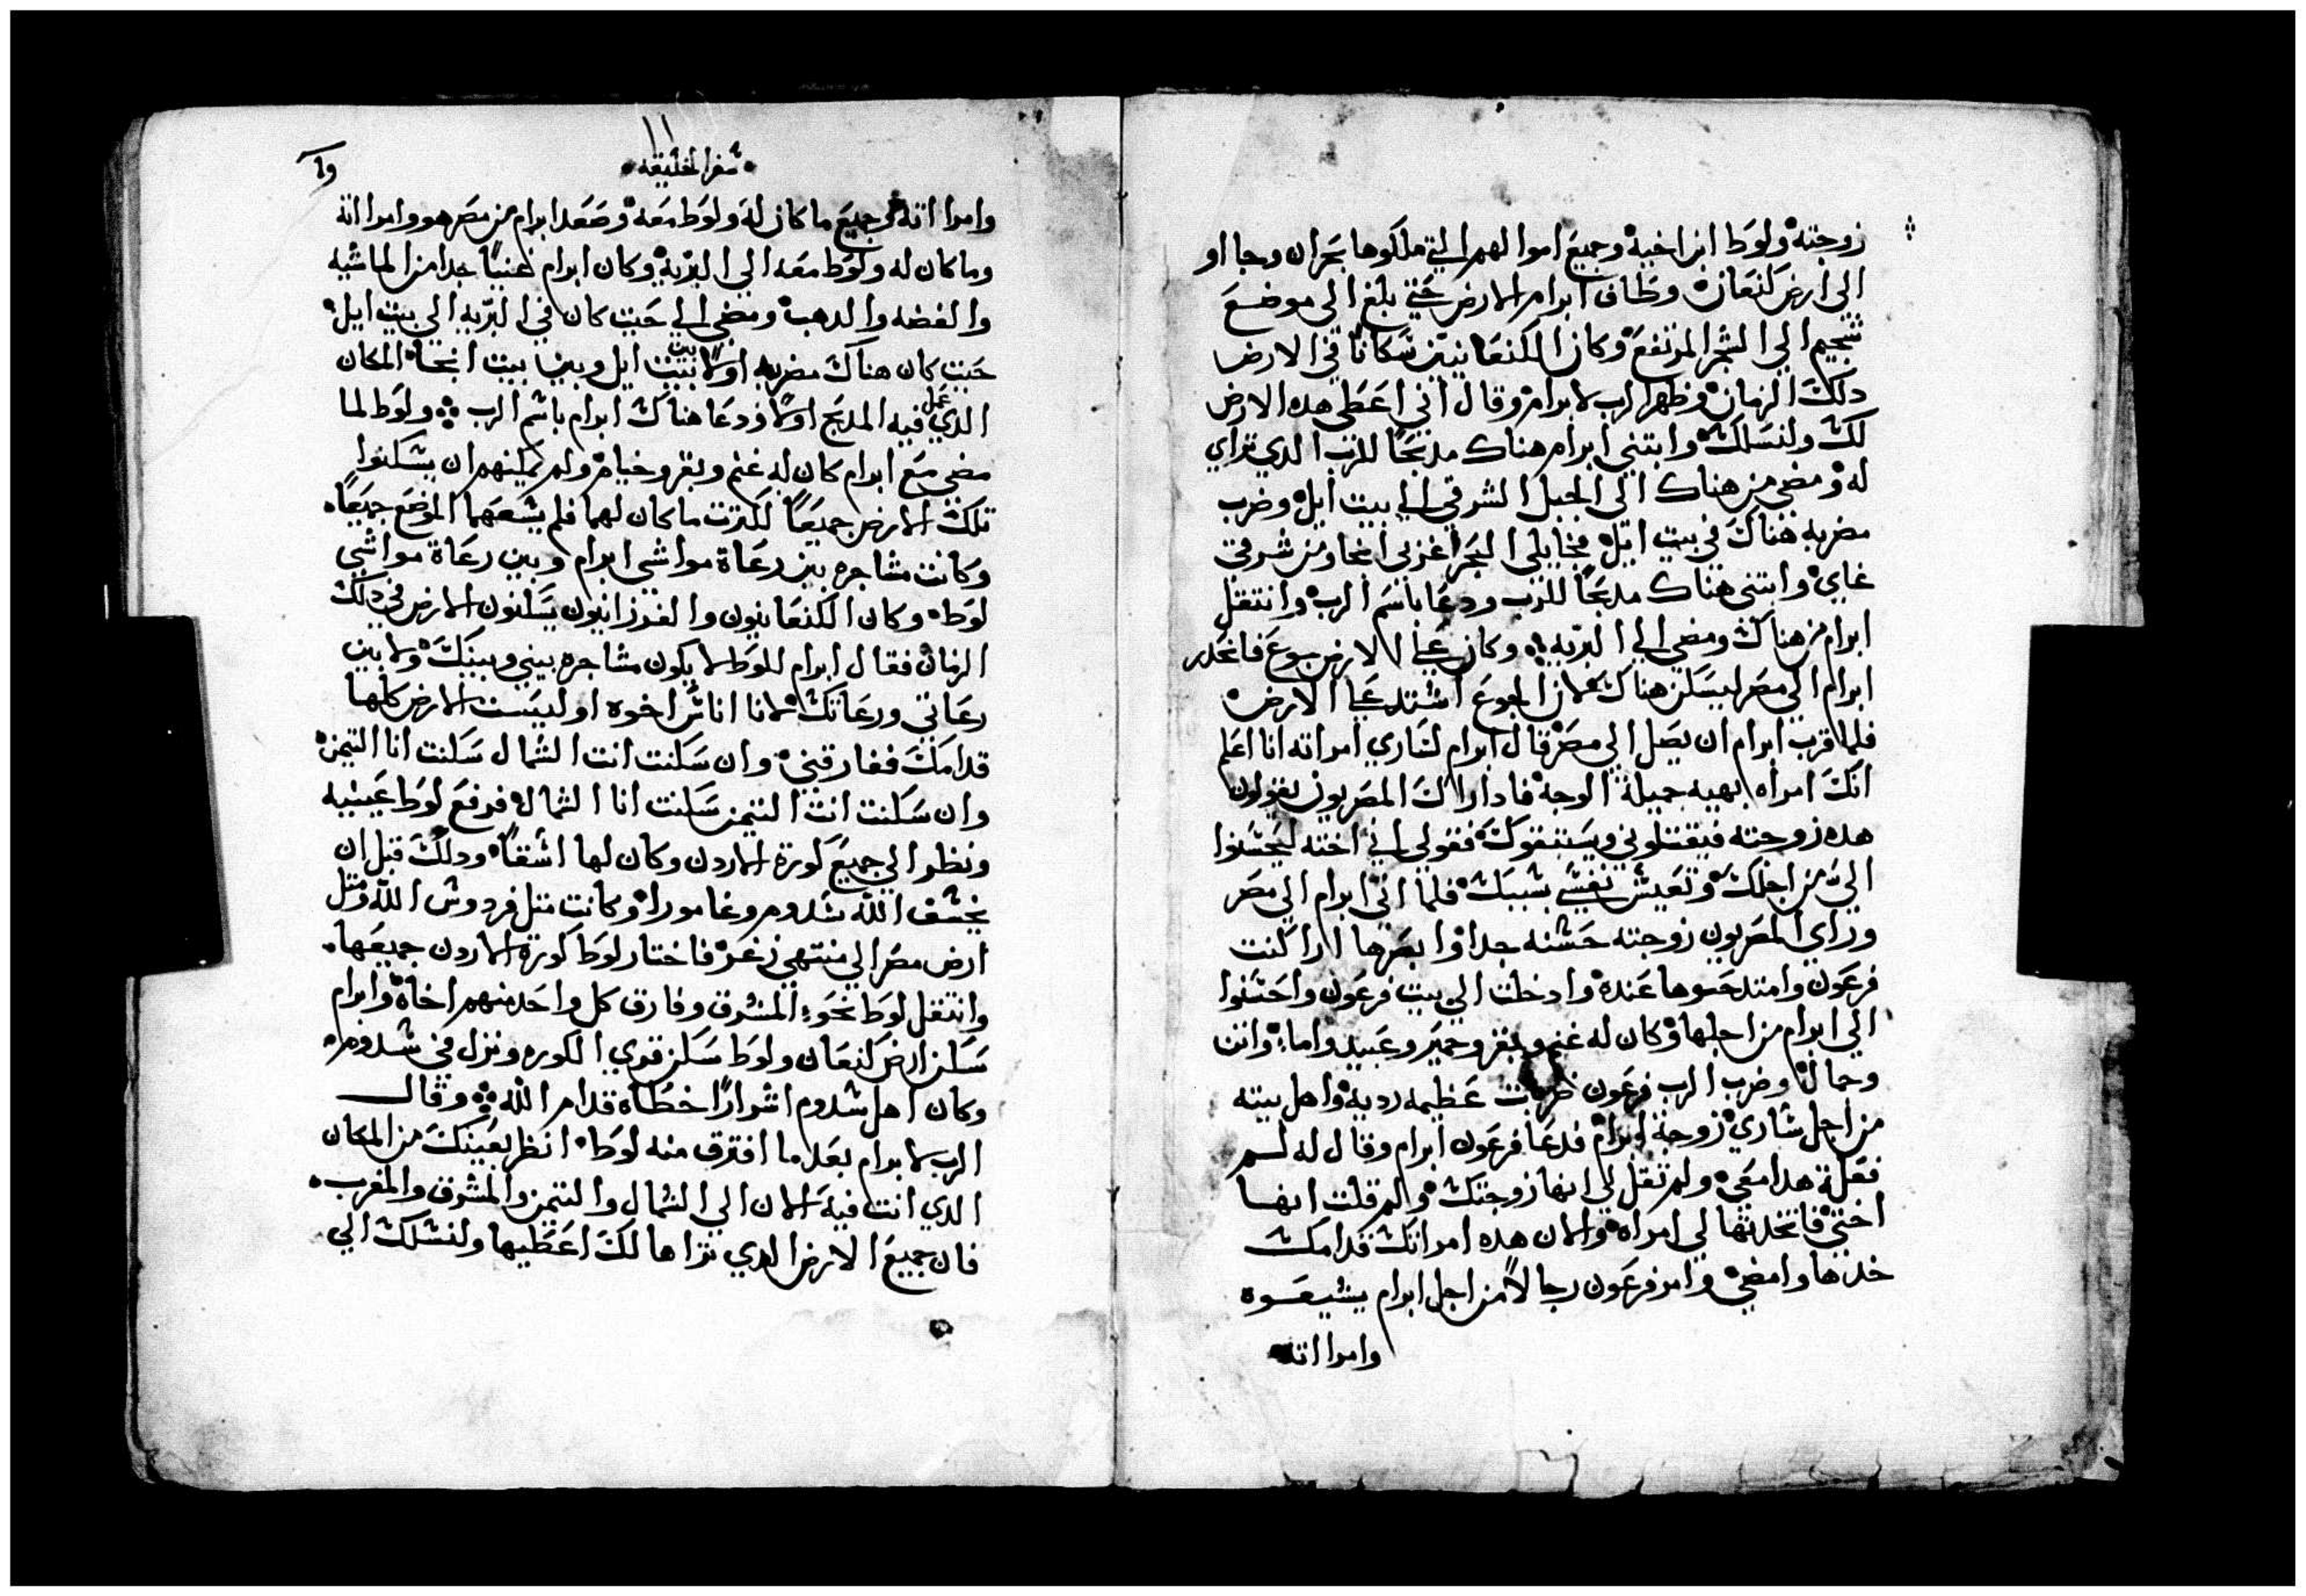 زوجته ولوط ابن اخيه وجميع اموالهم التي ملكوها بحران وجااو
الى ارض كنعان وطاف ابرام الارض حتي بلغ الى موضع
شجيم الي الشجر المرتفع وكان الكنعانيين سكانا في الارض
دلك الزمان وظهر الرب لابرام وقال اني اعطى هده الارض
لك ولنسلك وابتني ابرام هناك مدبحا للرب الدي تراي
له ومضي من هناك الى الجبل الشرقي الي بيت ايل وضرب
مضربه هناك في بيت ايل مخايلي البحر اغربي انحا ومن شرقي
غاي وابتنى هناك مدبحا للرب ودعا باسم الرب وانتقل
ابرام من هناك ومضي الي البريه وكان علي الارض جوع فانحدر
ابرام الي مصر ليسكن هناك لان الجوع اشتد علي الارض
فلما قرب ابرام ان يصل الي مصر قال ابرام لساري امراته انا اعلم
انك امراه بهيه جميلة الوجه فادا راك المصريون يقولون
هده زوجته فيقتلوني ويستبقوك فقولي اني اخته ليحسنوا
الي من اجلك وتعيش نفسي بسببك فلما اتي ابرام الي مصر
وراي المصريون زوجته حسنه جدا وابصرها اراكنت
فرعون وامتدحوها عنده وادخلت الي بيت فرعون واحسنوا
الي ابرام من اجلها وكان له غنم وبقر وحمير وعبيد واماء واتن
وجمال وضرب الرب فرعون ضربات عظيمه رديه واهل بيته
من اجل ساري زوجة ابرام فدعا فرعون ابرام وقال له لم
فعلة هدا معي ولم تقل لي انها زوجتك ولم قلت انها
اختي فاتخدتها لي امراه والان هده امراتك قدامك
خدها وامضي وامر فرعون رجالا من اجل ابرام يشيعوه
وامرااته
١١
سفر الخليقه
وامرااته وجميع ما كان له ولوط معه وصعد ابرام من مصر هو وامرااته
وما كان له ولوط معه الي البريه وكان ابرام غنيا جدا من الماشيه
والفضه والدهب ومضي الي حيت كان في البريه الي بيت ايل
حيت كان هناك مضربه اولا بين بيت ايل وبين بيت انحاه المكان
الدي عمل فيه المدبح اولا ودعا هناك ابرام باسم الرب ولوط لما
مضي مع ابرام كان له غنم وبقر وخيام ولم يمكنهم ان يسكنوا
تلك الارض جميعا لكترت ما كان لهما فلم يسعهما الموضع جميعا
وكانت مشاجره بين رعاة مواشي ابرام وبين رعاة مواشي
لوط وكان الكنعانيون والفرزانيون يسكنون الارض في دلك
الزمان فقال ابرام للوط لا يكون مشاجره بيني وبينك ولا بين
رعاتي ورعاتك لانا اناس اخوه اوليست الارض كلها
قدامك ففارقني وان سكنت انت الشمال سكنت انا التيمن
وان سكنت انت التيمن سكنت انا الشمال فرفع لوط عينيه
ونظر الي جميع كورة الاردن وكان لها اسقا ودلك قبل ان
يخسف الله سدوم وغامورا وكانت متل فردوس الله ومتل
ارض مصر الي منتهي زغر فاختار لوط كورة الاردن جميعها
وانتقل لوط نحو المشرق وفارق كل واحد منهم اخاه وابرام
سكن ارض كنعان ولوط سكن قوي الكوره ونزل في سدوم
وكان اهل سدوم اشرارا خطاه قدام الله وقال
الرب لابرام بعد ما افترق منه لوط انظر بعينك من المكان
الدي انت فيه الان الي الشمال والتيمن والمشرق والمغرب
فان جميع الارض الدي تراها لك اعطيها ولنسلك الي